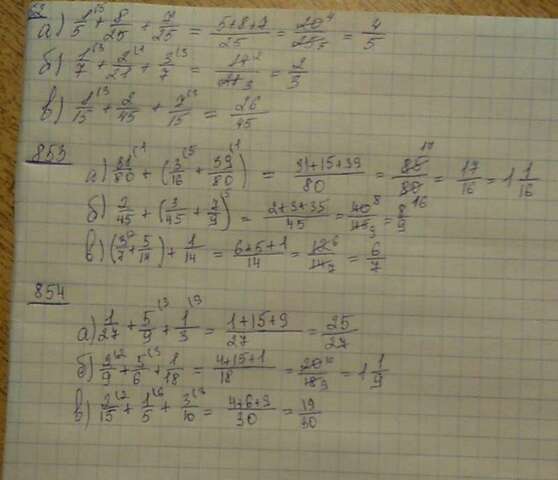 а) 1/5 + 8/25 + 7/25 = (5+8+7)/25 = 20/25 = 4/5
б) 1/7 + 2/21 + 3/7 = 14/21 = 2/3
в) 1/15 + 2/45 + 7/15 = 26/45
853
а) 31/80 + (3/16 + 39/80) = (31+15+39)/80 = 85/80 = 17/16 = 1 1/16
б) 2/45 + (3/45 + 7/9) = (2+3+35)/45 = 40/45 = 8/9
в) (3/7 + 5/14) + 1/14 = (6+5+1)/14 = 12/14 = 6/7
854
а) 1/27 + 5/9 + 1/3 = (1+15+9)/27 = 25/27
б) 2/9 + 5/6 + 1/18 = (4+15+1)/18 = 20/18 = 1 1/9
в) 2/15 + 1/5 + 3/10 = (4+6+9)/30 = 19/30